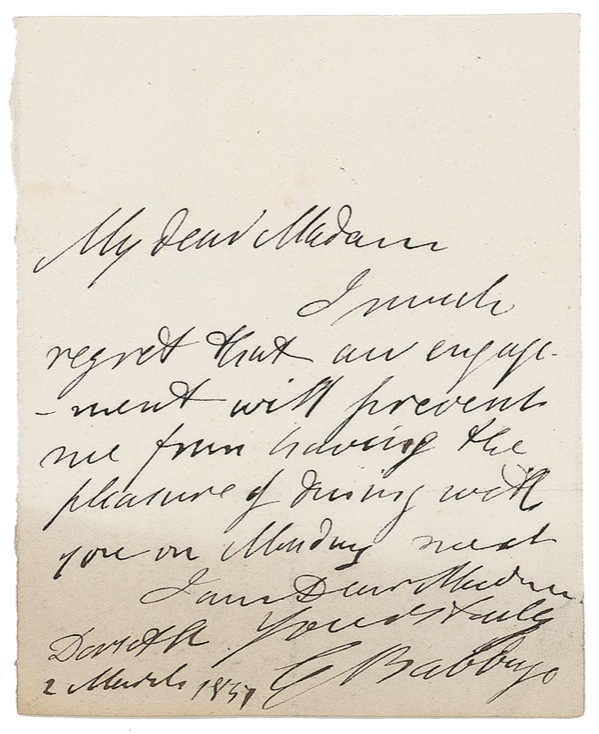 My dear Madam
I much
regret that an engage-
-ment will prevent
me from having the
pleasure of dining with
you on Monday next
I am Dear Madam
Yours truly
C Babbage
Dorset St
2 March